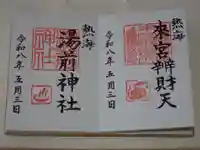 熱海
來宮辨財天
令和八年五月三日
熱海
湯前神社
令和八年五月三日